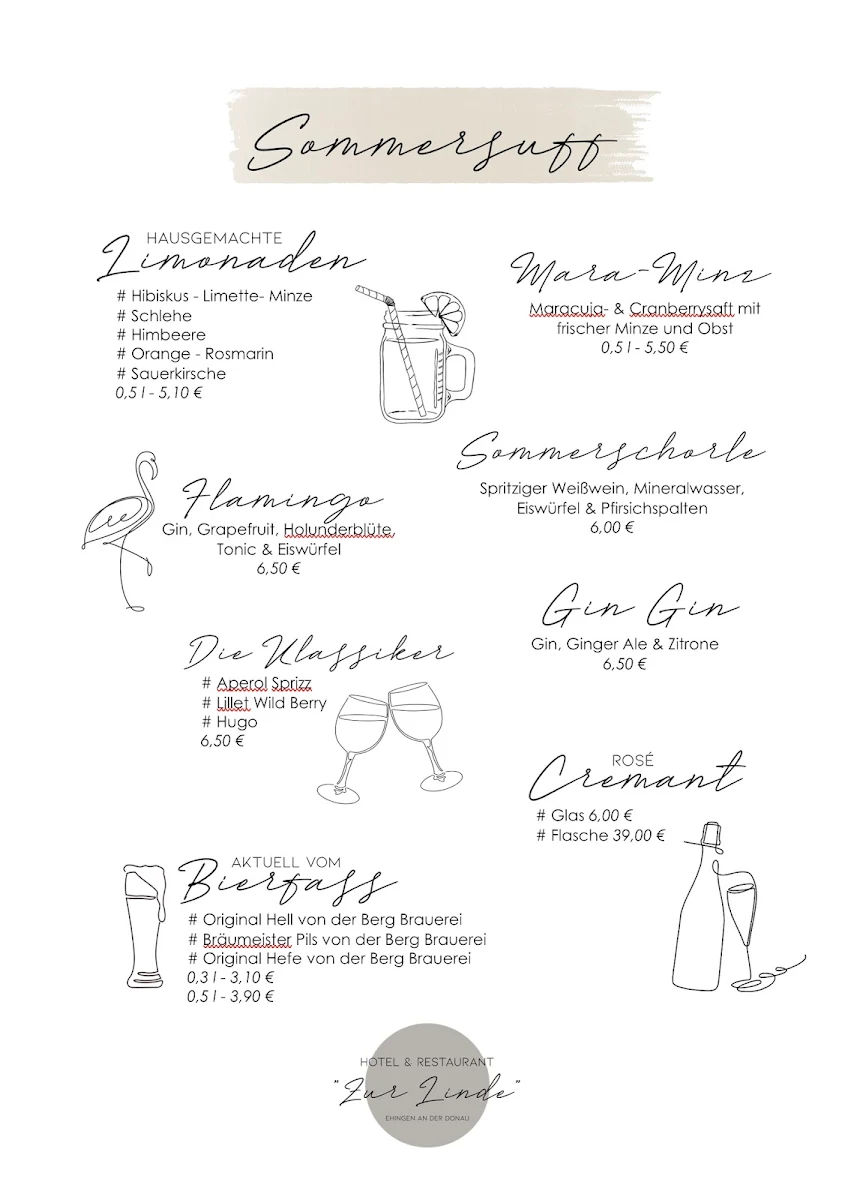 Sommersuff
HAUSGEMACHTE
Limonaden
# Hibiskus - Limette- Minze
# Schlehe
# Himbeere
# Orange - Rosmarin
# Sauerkirsche
0,5 l - 5,10 €
Mara-Minz
Maracuja- & Cranberrysaft mit
frischer Minze und Obst
0,5 l - 5,50 €
Sommerschorle
Spritziger Weißwein, Mineralwasser,
Eiswürfel & Pfirsichspalten
6,00 €
Flamingo
Gin, Grapefruit, Holunderblüte,
Tonic & Eiswürfel
6,50 €
Gin Gin
Gin, Ginger Ale & Zitrone
6,50 €
Die Klassiker
# Aperol Sprizz
# Lillet Wild Berry
# Hugo
6,50 €
ROSÉ
Cremant
# Glas 6,00 €
# Flasche 39,00 €
AKTUELL VOM
Bierfass
# Original Hell von der Berg Brauerei
# Bräumeister Pils von der Berg Brauerei
# Original Hefe von der Berg Brauerei
0,3 l - 3,10 €
0,5 l - 3,90 €
HOTEL & RESTAURANT
"Zur Linde"
EHINGEN AN DER DONAU